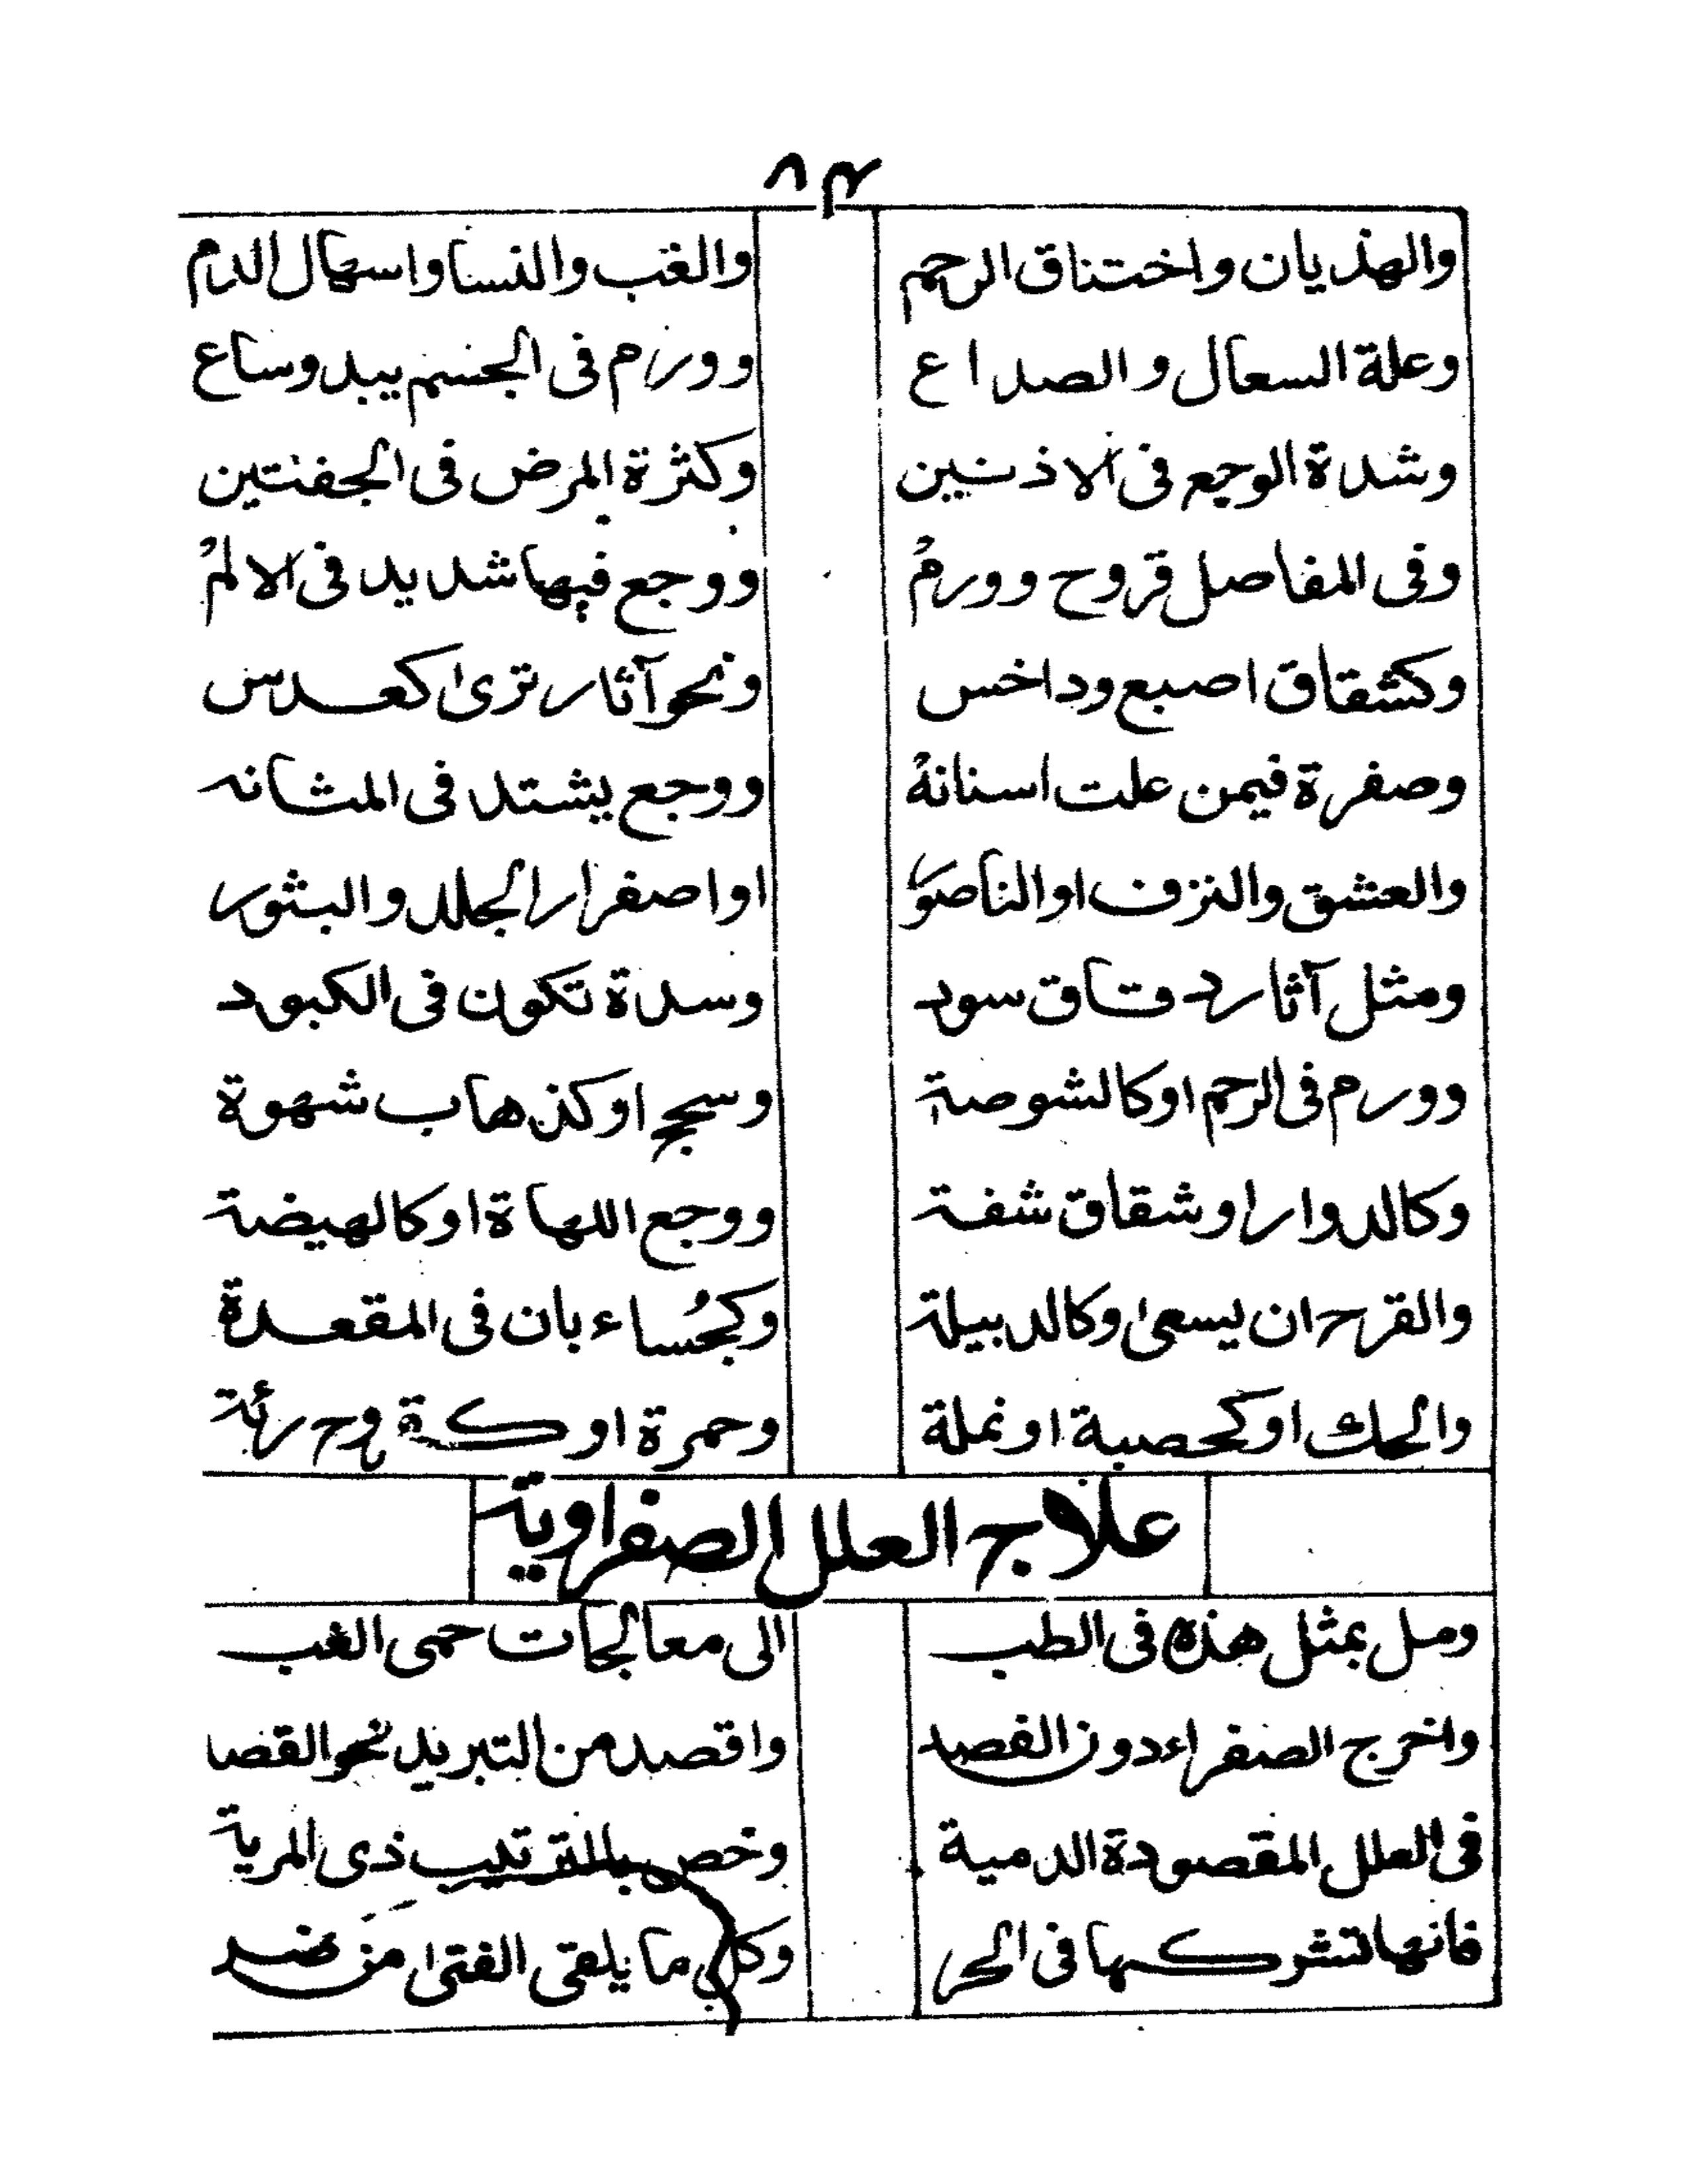 ٨٣
والهذيان واختناق الرحم والغب والنسا واسهال الدم
وعلة السعال والصداع وورم فى الجسم يبدو ساع
وشدة الوجع فى الاذنين وكثرة المرض فى الجفنتين
وفى المفاصل قروح وورمُ ووجع فيها شديد فى الالمُ
وكشقاق اصبع وداخس ونحو آثار ترى كعدس
وصفرة فيمن علت اسنانهُ ووجع يشتد فى المثانه
والعشق والنزف او الناصور او اصفرار الجلد والبثور
ومثل آثار دقاق سود وسدة تكون فى الكبود
وورم فى الرحم او كالشوصة وسحج او كذهاب شهوة
وكالدوار او شقاق شفة ووجع اللهاة او كالهيضة
والقرح ان يسعى وكالدبيلة وكجُساء بان فى المقعدة
والحكك او كحصبة او نملة وحمرة او قرح رئة
علاج العلل الصفراوية
ومل بمثل هذه فى الطب الى معالجات حمى الغب
واخرج الصفراء دون الفصد واقصد من التبريد نحو القصد
فى العلل المقصودة الدمية وخص بالترتيب ذى المرية
فانها تشركها فى الحر وكل ما يلقى الفتى من ضر